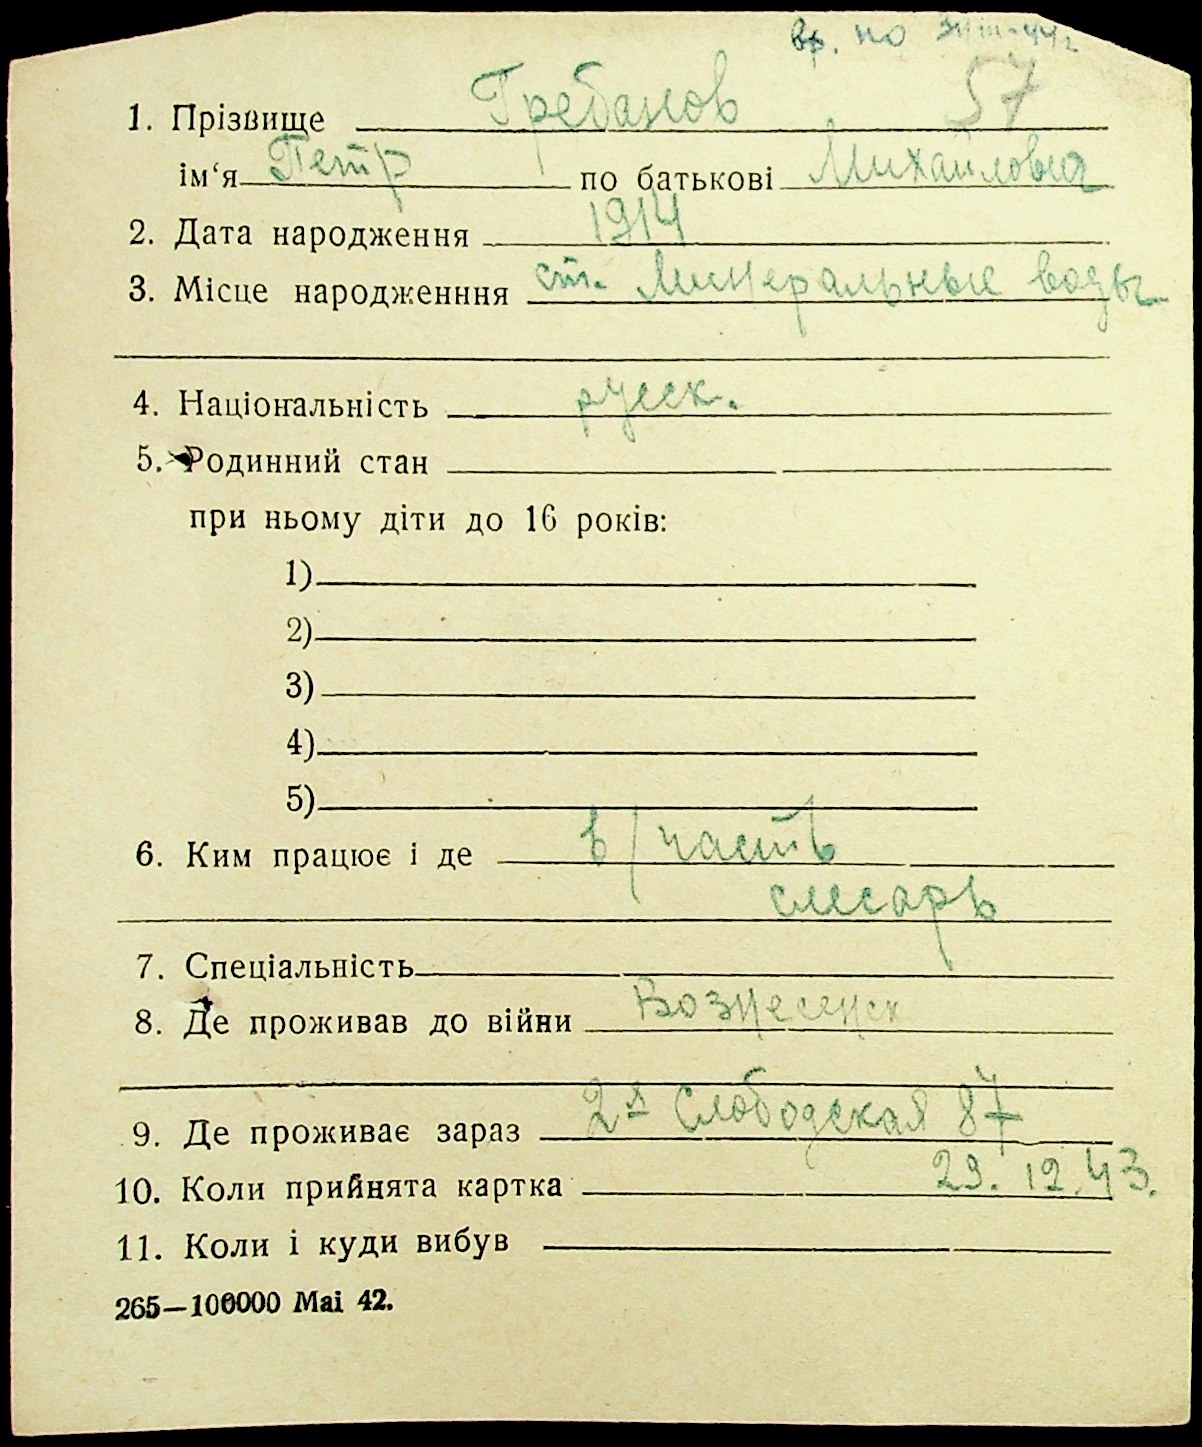 вр. по 31/III-44г
57
1. Прізвище Гребанов
ім‘я Петр по батькові Михайловна
2. Дата народження 1914
3. Місце народженння ст. Минеральные воды
4. Національність русск.
5. Родинний стан
при ньому діти до 16 років:
1)
2)
3)
4)
5)
6. Ким працює і де в/часть
слесарь
7. Спеціальність
8. Де проживав до війни Вознесенск
9. Де проживає зараз 2я Слободская 87
10. Коли прийнята картка 29.12.43.
11. Коли і куди вибув
265—100000 Маі 42.